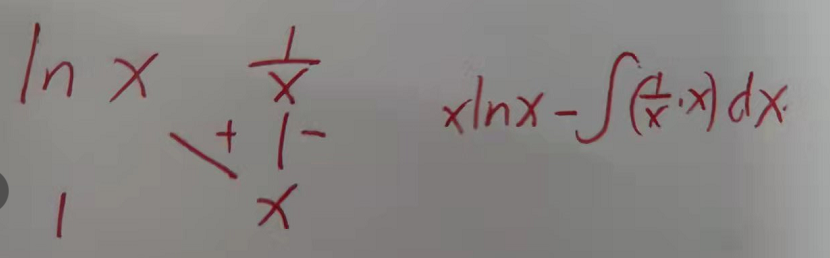 ln x 1/x
+ | -
1 x
xlnx - ∫(1/x · x) dx.